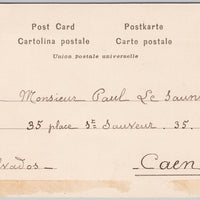 Post Card Postkarte
Cartolina postale Carte postale
Union postale universelle
Monsieur Paul Le
35 place St Sauveur . 35 .
Caen